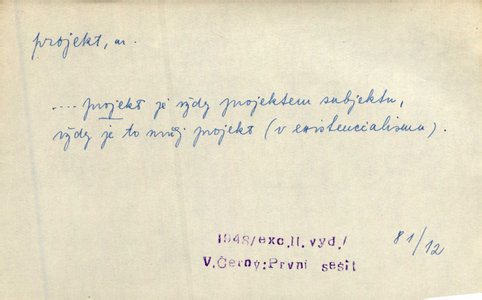 projekt, m.
.... projekt je vždy projektem subjektu,
vždy je to můj projekt (v existencialismu).
1948/exc.II.vyd./
V.Černý:První sešit
81/12